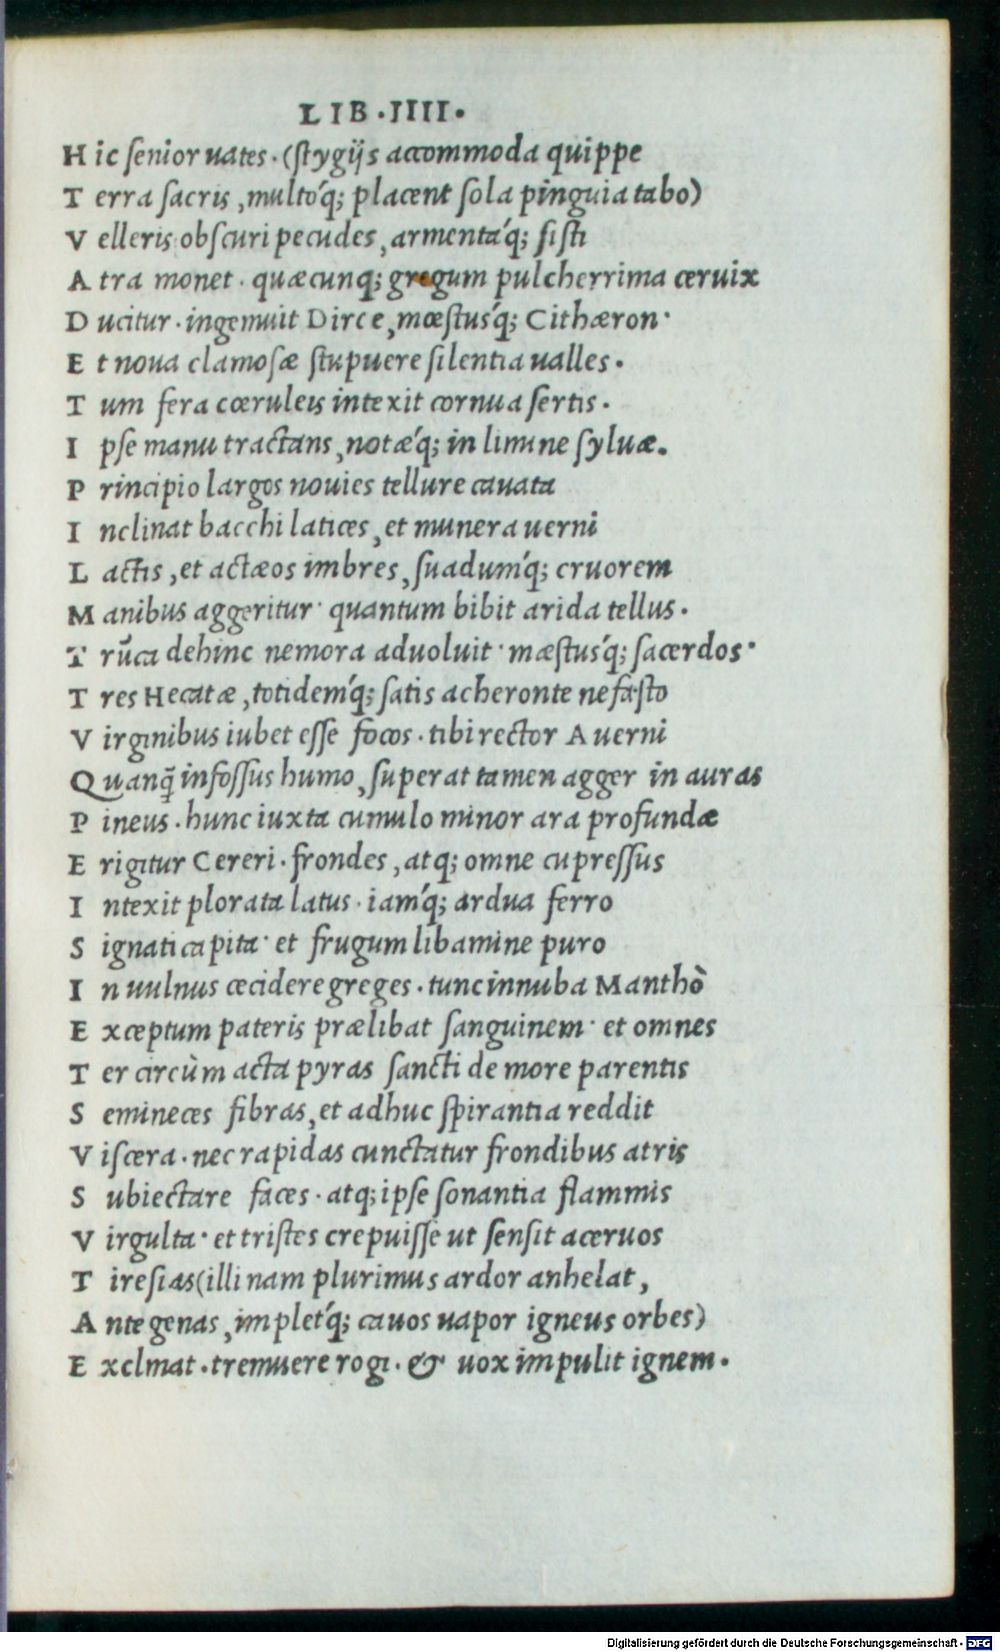 LIB.IIII.
H ic ſenior uates. (ſtygijs accommoda quippe
T erra ſacris, multoq́; placent ſola pinguia tabo)
V elleris obſcuri pecudes, armentaq́; ſiſti
A tra monet. quæcunq; gregum pulcherrima ceruix
D ucitur. ingemuit Dirce, mœſtusq́; Cithæron.
E t noua clamoſæ ſtupuere ſilentia ualles.
T um fera cœruleis intexit cornua ſertis.
I pſe manu tractans, notæq́; in limine ſyluæ.
P rincipio largos nouies tellure cauata
I nclinat bacchi latices, et munera uerni
L actis, et actæos imbres, ſuadumq́; cruorem
M anibus aggeritur. quantum bibit arida tellus.
T rūca dehinc nemora aduoluit. mæſtusq́; ſacerdos.
T res Hecatæ, totidemq́; ſatis acheronte nefaſto
V irginibus iubet eſſe focos. tibi rector Auerni
Q uanq̄ infoſſus humo, ſuperat tamen agger in auras
P ineus. hunc iuxta cumulo minor ara profundæ
E rigitur Cereri. frondes, atq; omne cupreſſus
I ntexit plorata latus. iamq́; ardua ferro
S ignati capita. et frugum libamine puro
I n uulnus cecidere greges. tunc innuba Manthò
E xceptum pateris prælibat ſanguinem. et omnes
T er circùm acta pyras ſancti de more parentis
S emineces fibras, et adhuc ſpirantia reddit
V iſcera. nec rapidas cunctatur frondibus atris
S ubiectare faces. atq; ipſe ſonantia flammis
V irgulta. et triſtes crepuiſſe ut ſenſit aceruos
T ireſias (illi nam plurimus ardor anhelat,
A nte genas, impletq́; cauos uapor igneus orbes)
E xclmat. tremuere rogi. & uox impulit ignem.
Digitalisierung gefördert durch die Deutsche Forschungsgemeinschaft - DFG